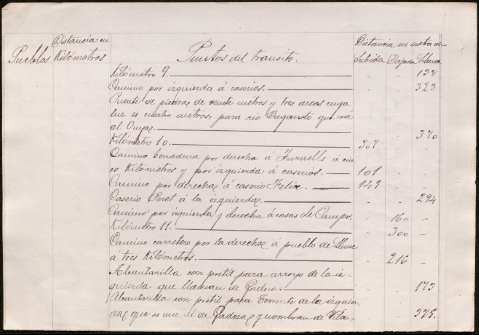 Pueblos Distancia en Kilómetros Puntos del tránsito. Distancia en metros
Subida Bajada Llano
Kilómetro 9. 122
Camino por izquierda á caserios. 323
Puente de piedra de veinte metros y tres arcos cuya
luz es cuatro metros, para rio que va
al 320
Kilómetro 10. 307
Camino herradura por derecha á á cin
co Kilómetros y por izquierda á caserios. 101
Camino por derecha á caserio Felix. 129
Caserio á la izquierda. 294
Camino por izquierda y derecha á casas de Campo. 160
Kilómetro 11. 300
Camino carretero por la derecha á pueblo de
á tres Kilómetros. 216
Alcantarilla con pretil para arroyo de la iz
quierda que llaman la 173
Alcantarilla con pretil para torrente de la izquier
da, que se une al de y nombran de Vila. 325.